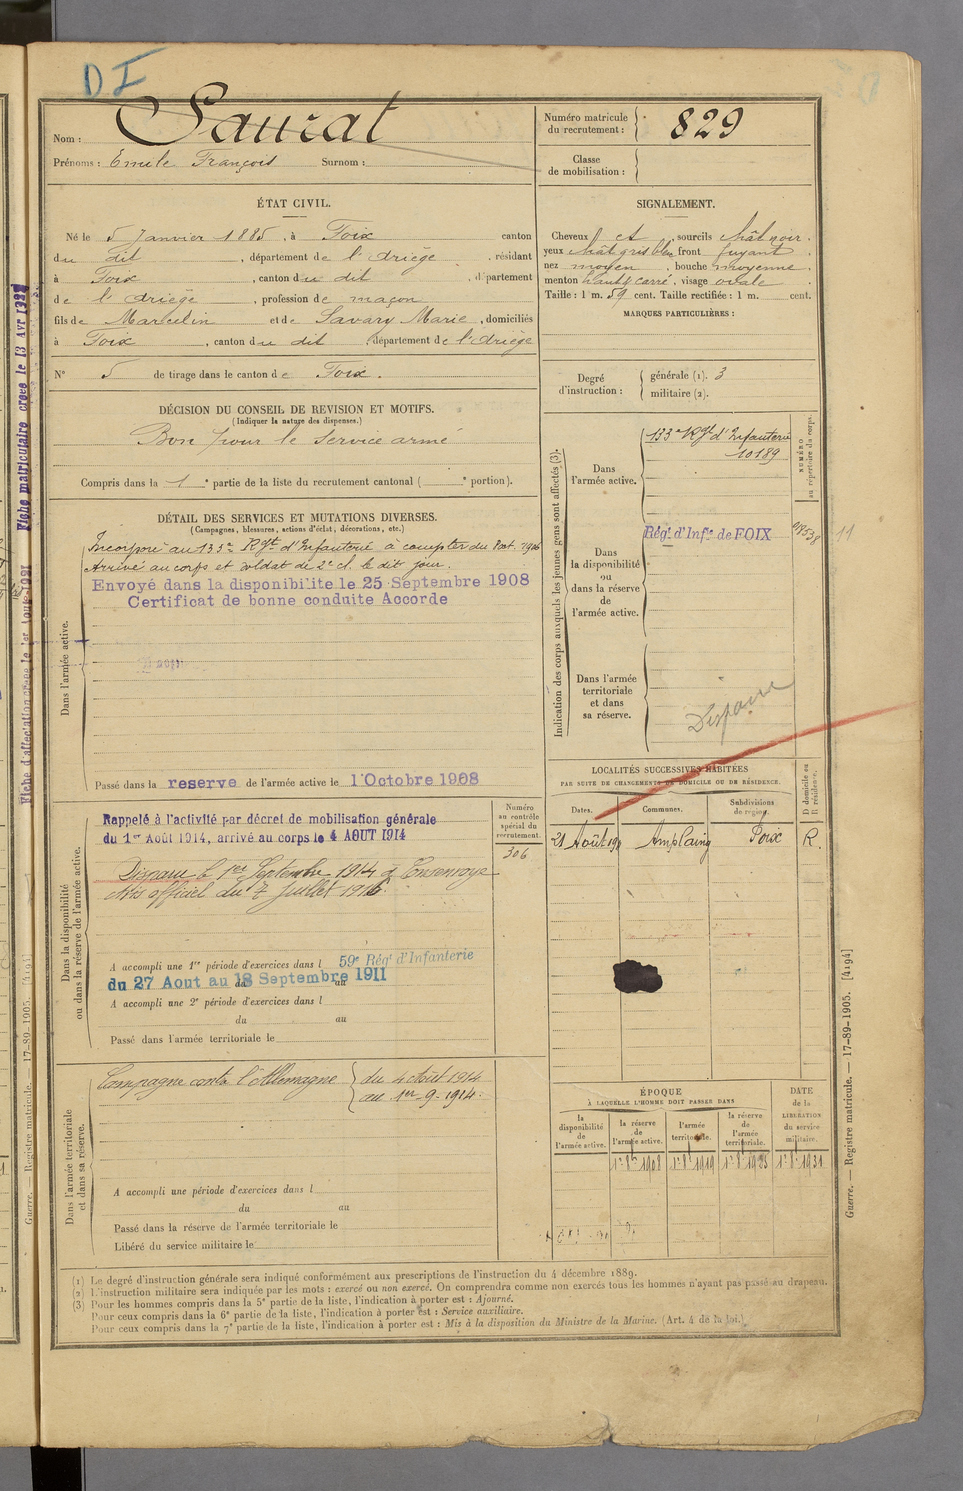 D I
Nom : Saurat
Prénoms : Emile François Surnom :
Numéro matricule du recrutement : 829
Classe de mobilisation :
ÉTAT CIVIL.
Né le 5 Janvier 1885, à Foix canton
du dit, département de l'Ariège, résidant
à Foix, canton du dit, département
de l'Ariège, profession de maçon
fils de Marcelin et de Savary Marie, domiciliés
à Foix, canton du dit, département de l'Ariège
N° 5 de tirage dans le canton de Foix.
SIGNALEMENT.
Cheveux et, sourcils chât noir.
yeux chât gris bleu front fuyant.
nez moyen, bouche moyenne.
menton haut & carré, visage ovale.
Taille : 1 m. 59 cent. Taille rectifiée : 1 m. cent.
MARQUES PARTICULIÈRES :
Degré d'instruction : générale (1). 3
militaire (2).
DÉCISION DU CONSEIL DE REVISION ET MOTIFS.
(Indiquer la nature des dispenses.)
Bon pour le service armé
Compris dans la 1e partie de la liste du recrutement cantonal ( e portion).
DÉTAIL DES SERVICES ET MUTATIONS DIVERSES.
(Campagnes, blessures, actions d'éclat, décorations, etc.)
Dans l'armée active.
Incorporé au 133e Rgt d'Infanterie à compter du 1906
Arrivé au corps et soldat de 2e cl. le dit jour.
Envoyé dans la disponibilite le 25 Septembre 1908
Certificat de bonne conduite Accorde
Passé dans la reserve de l'armée active le 1 Octobre 1908
Indication des corps auxquels les jeunes gens sont affectés (3).
NUMÉRO au répertoire du corps.
Dans l'armée active.
133e Rgt d'Infanterie
10189
Dans la disponibilité ou dans la réserve de l'armée active.
Régt. d'Infie de FOIX
11
Dans l'armée territoriale et dans sa réserve.
Disparu
LOCALITÉS SUCCESSIVES HABITÉES
PAR SUITE DE CHANGEMENTS DE DOMICILE OU DE RÉSIDENCE.
Dates. Communes. Subdivisions de région. D domicile ou R résidence.
21 Août Amplaing Foix R.
Dans la disponibilité ou dans la réserve de l'armée active.
Numéro au contrôle spécial du recrutement.
306
Rappelé à l'activité par décret de mobilisation générale
du 1er Août 1914, arrivé au corps le 4 AOUT 1914
Disparu le 1er Septembre 1914 à
Avis officiel du 7 Juillet 1916
A accompli une 1re période d'exercices dans l 59e Régt d'Infanterie
du 27 Aout au 18 Septembre 1911
A accompli une 2e période d'exercices dans l
du au
Passé dans l'armée territoriale le
Dans l'armée territoriale et dans sa réserve.
Campagne contre l'Allemagne du 4 Août 1914
au 1er-9-1914.
A accompli une période d'exercices dans l
du au
Passé dans la réserve de l'armée territoriale le
Libéré du service militaire le
ÉPOQUE
À LAQUELLE L'HOMME DOIT PASSER DANS
la disponibilité de l'armée active. la réserve de l'armée active. l'armée territoriale. la réserve de l'armée territoriale. DATE de la LIBÉRATION du service militaire.
1908 1919 1925 1931
(1) Le degré d'instruction générale sera indiqué conformément aux prescriptions de l'instruction du 4 décembre 1889.
(2) L'instruction militaire sera indiquée par les mots : exercé ou non exercé. On comprendra comme non exercés tous les hommes n'ayant pas passé au drapeau.
(3) Pour les hommes compris dans la 5e partie de la liste, l'indication à porter est : Ajourné.
Pour ceux compris dans la 6e partie de la liste, l'indication à porter est : Service auxiliaire.
Pour ceux compris dans la 7e partie de la liste, l'indication à porter est : Mis à la disposition du Ministre de la Marine. (Art. 4 de la loi.)
Guerre. — Registre matricule. — 17-89-1905. [4194]
Guerre. — Registre matricule. — 17-89-1905. [4194]